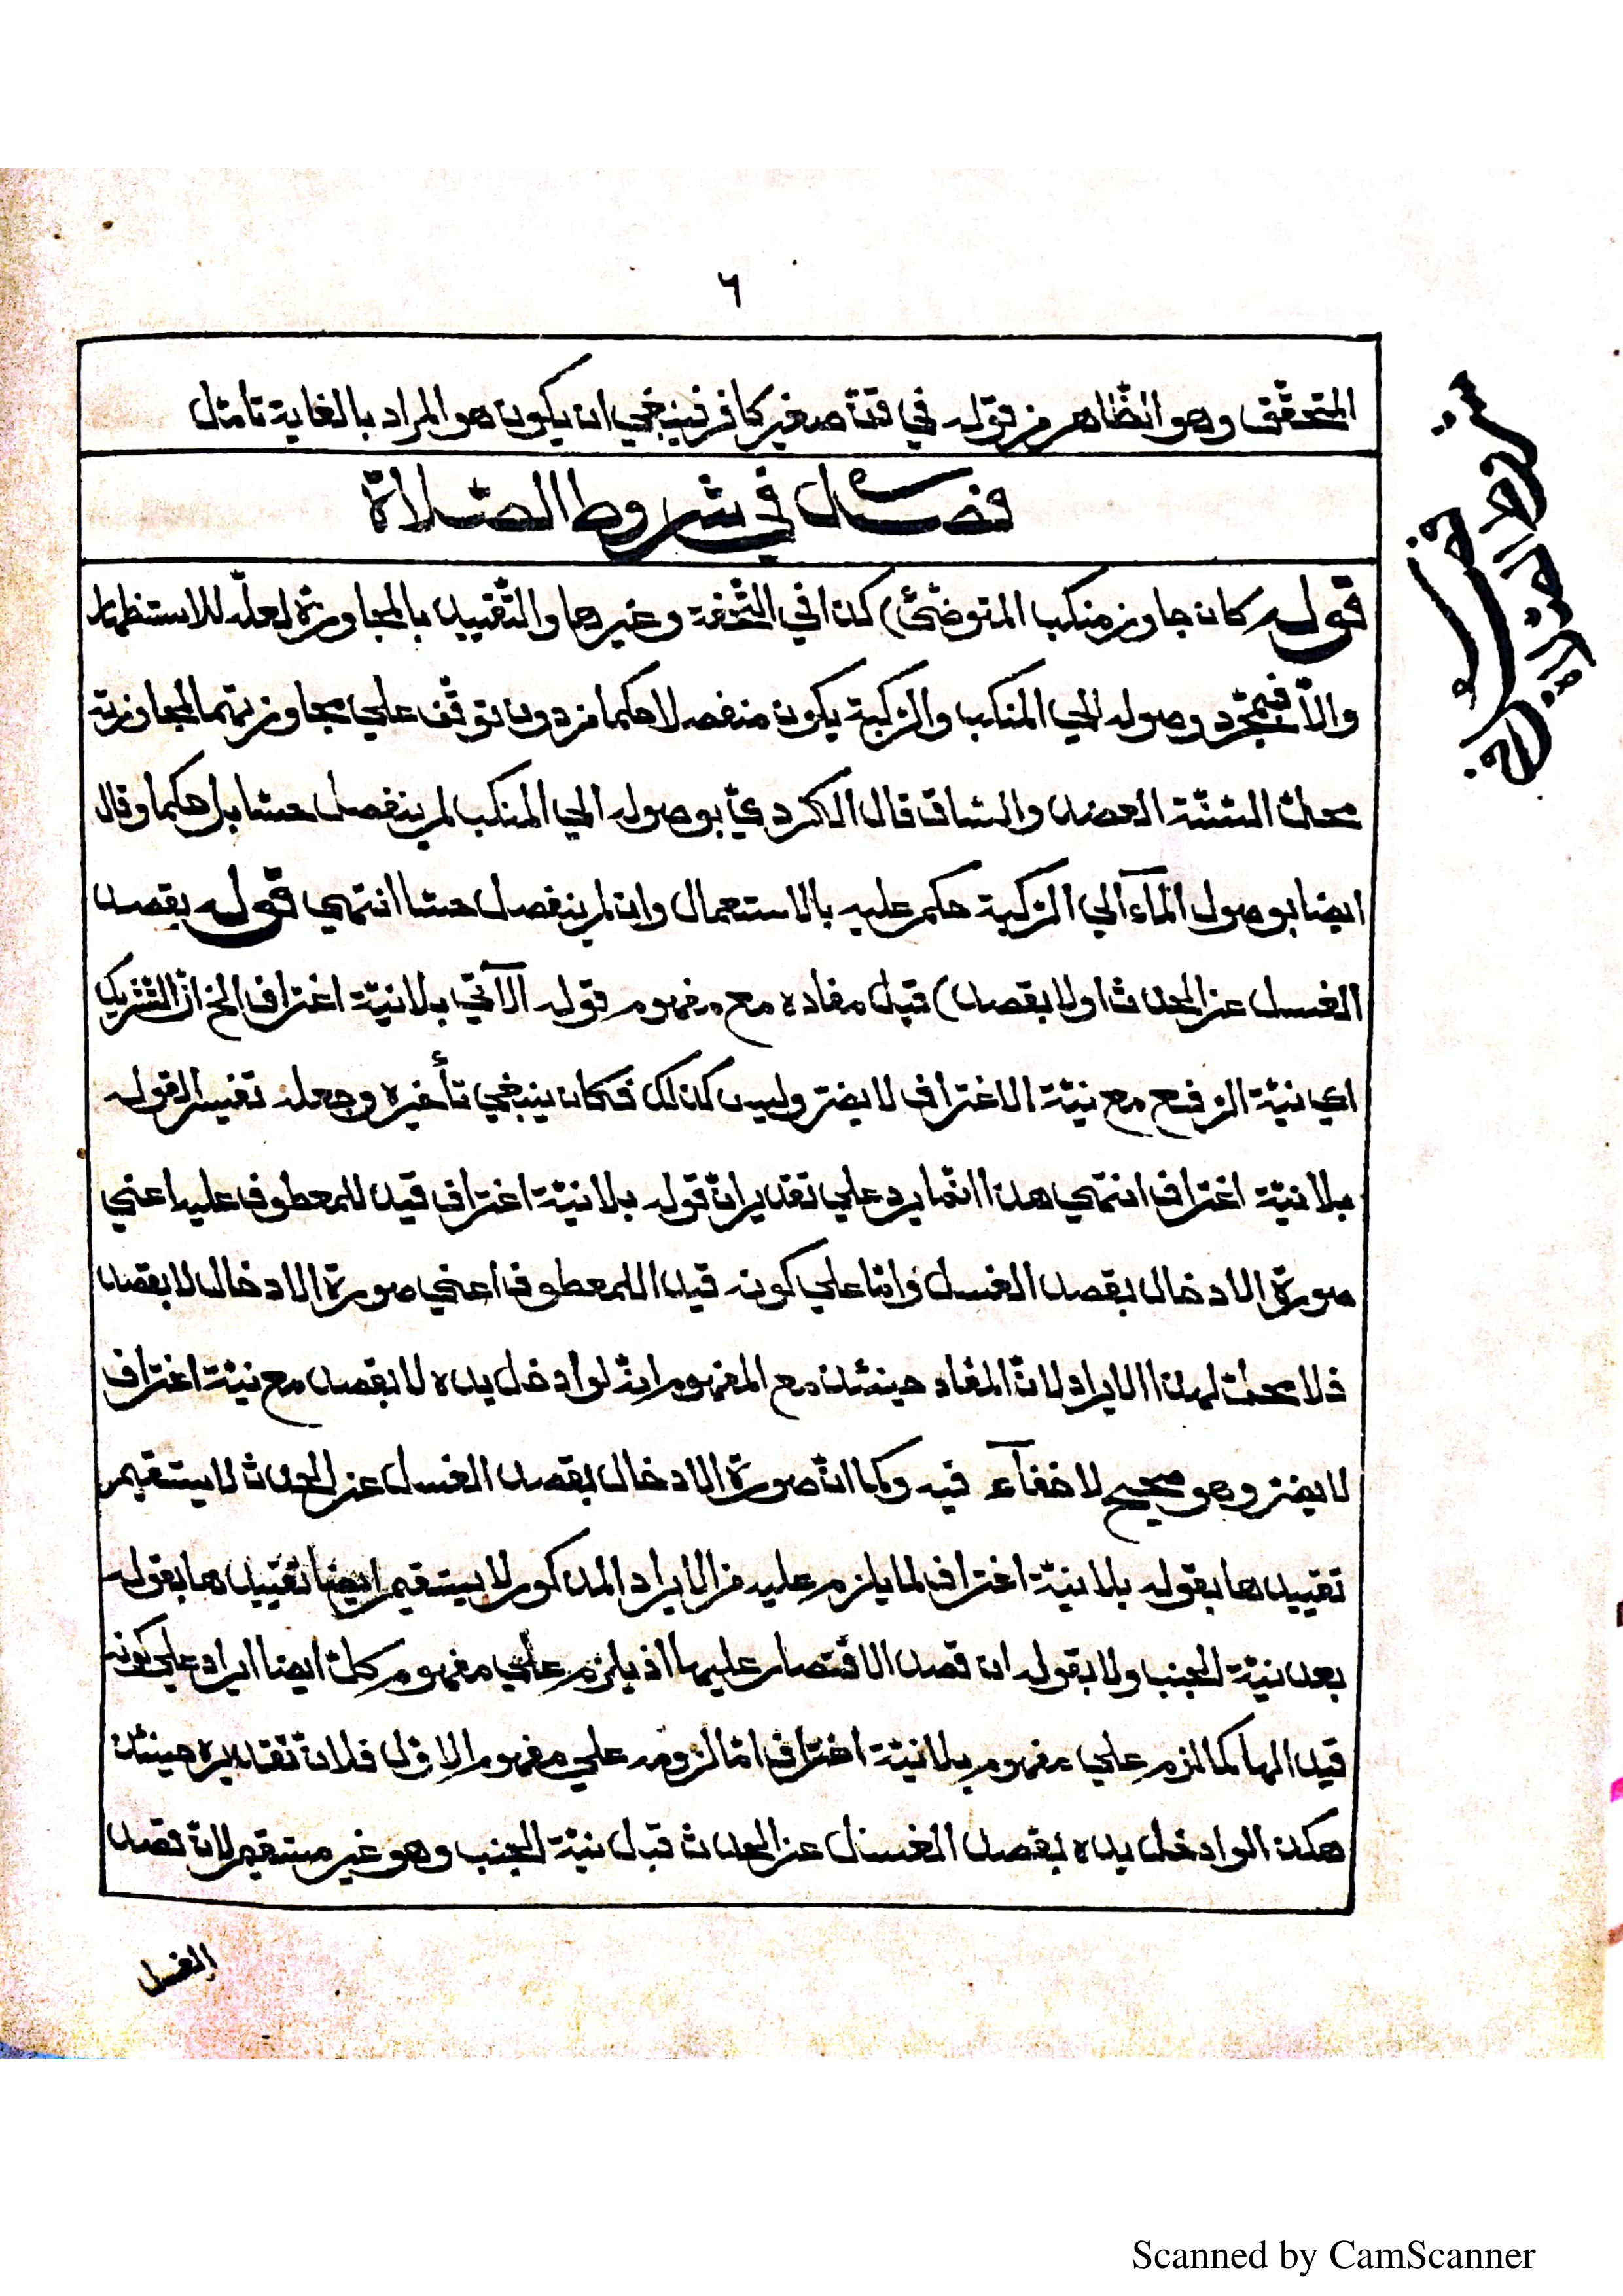 ٦
المتحقّق وهو الظّاهر من قوله في قنّ صغير كافر فينبغي ان يكون هو المراد بالغاية تامّل
فصل في شروط الصّلاة
قوله كان جاوز منكب المتوضّئ) كذا في التّحفة وغيرها والتّقييد بالمجاوزة لعلّه للاستظهار
والّا فبمجرّد وصوله الي المنكب والرّكبة يكون منفصلا حكما من دون توقّف علي تجاوزتهما لمجاوزة
محلّ السّنّة العضد والسّاق قال الكرديّ بوصوله الي المنكب لم ينفصل حسّا بل حكما وقال
ايضا بوصول المآء الي الرّكبة حكم عليه بالاستعمال وان لم ينفصل حسّا انتهي قوله بقصد
الغسل عن الحدث او لا بقصد) قيل مفاده مع مفهوم قوله الآتي بلا نيّة اغتراف الخ انّ التّشريك
اي نيّة الرّفع مع نيّة الاغتراف لا يضرّ وليس كذلك فكان ينبغي تأخيره وجعله تفسيرا لقوله
بلا نيّة اغتراف انتهي هذا انّما يرد علي تقدير انّ قوله بلا نيّة اغتراف قيد للمعطوف عليه اعني
صورة الادخال بقصد الغسل وامّا علي كونه قيدا للمعطوف اعني صورة الادخال لا بقصد
فلا محلّ لهذا الايراد لانّ المفاد حينئذ مع المفهوم انّه لو ادخل يده لا بقصد مع نيّة اغتراف
لا يضرّ وهو صحيح لا خفآء فيه وكما انّ صورة الادخال بقصد الغسل عن الحدث لا يستقيم
تقييدها بقوله بلا نيّة اغتراف لما يلزم عليه من الايراد المذكور لا يستقيم ايضا تقييدها بقوله
بعد نيّة الجنب ولا بقوله ان قصد الاقتصار عليها اذ يلزم علي مفهوم كلّ ايضا ايراد علي كونه
قيدا لها كما لزم علي مفهوم بلا نيّة اغتراف امّا لزومه علي مفهوم الاوّل فلانّ تقديره حينئذ
هكذا لو ادخل يده بقصد الغسل عن الحدث قبل نيّة الجنب وهو غير مستقيم لانّ قصد
الغسل
Scanned by CamScanner